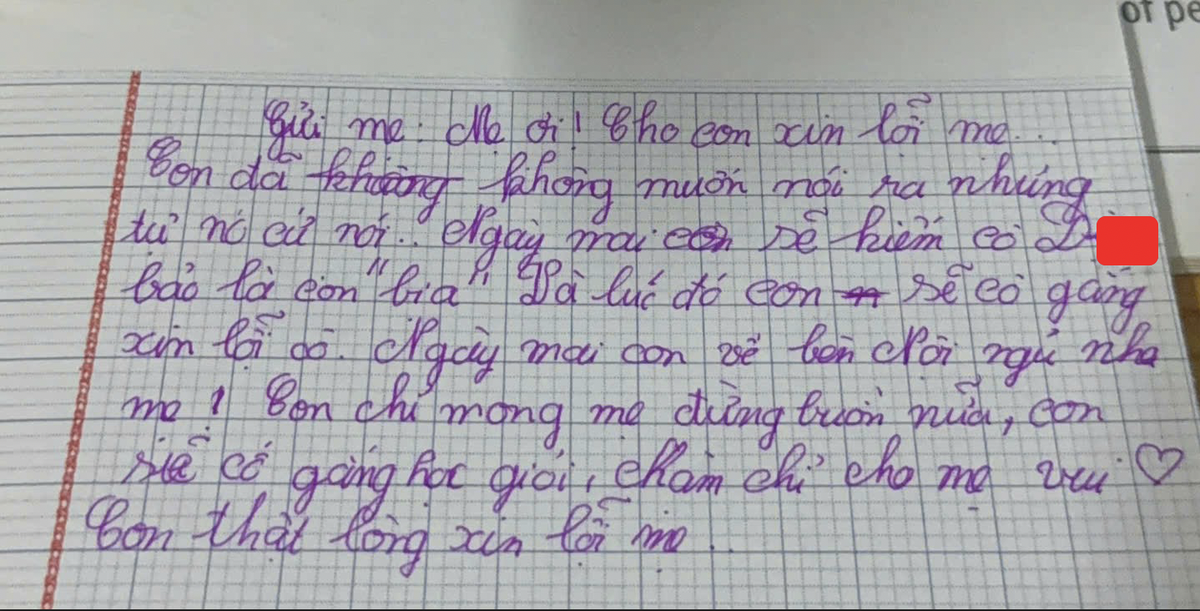 of pe
Gửi mẹ: Mẹ ơi! Cho con xin lỗi mẹ..
Con đã không không muốn nói ra những
từ nó cứ nói.. Ngày mai con sẽ kiếm cô D
bảo là con "bịa" Và lúc đó con sẽ cố gắng
xin lỗi cô. Ngày mai con về bên Nội ngủ nha
mẹ! Con chỉ mong mẹ đừng buồn nữa, con
sẽ cố gắng học giỏi, chăm chỉ cho mẹ vui ♡
Con thật lòng xin lỗi mẹ..